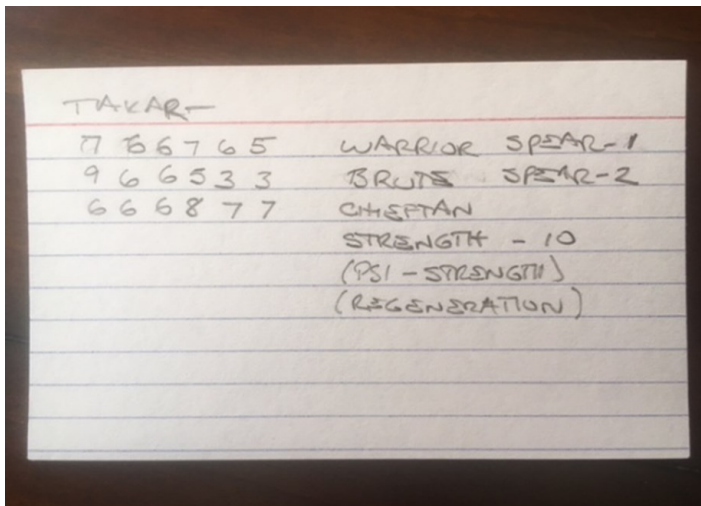 TAKAR-
7 6 6 7 6 5 WARRIOR SPEAR-1
9 6 6 5 3 3 BRUTE SPEAR-2
6 6 6 8 7 7 CHIEFTAN
STRENGTH - 10
(PSI-STRENGTH)
(REGENERATION)